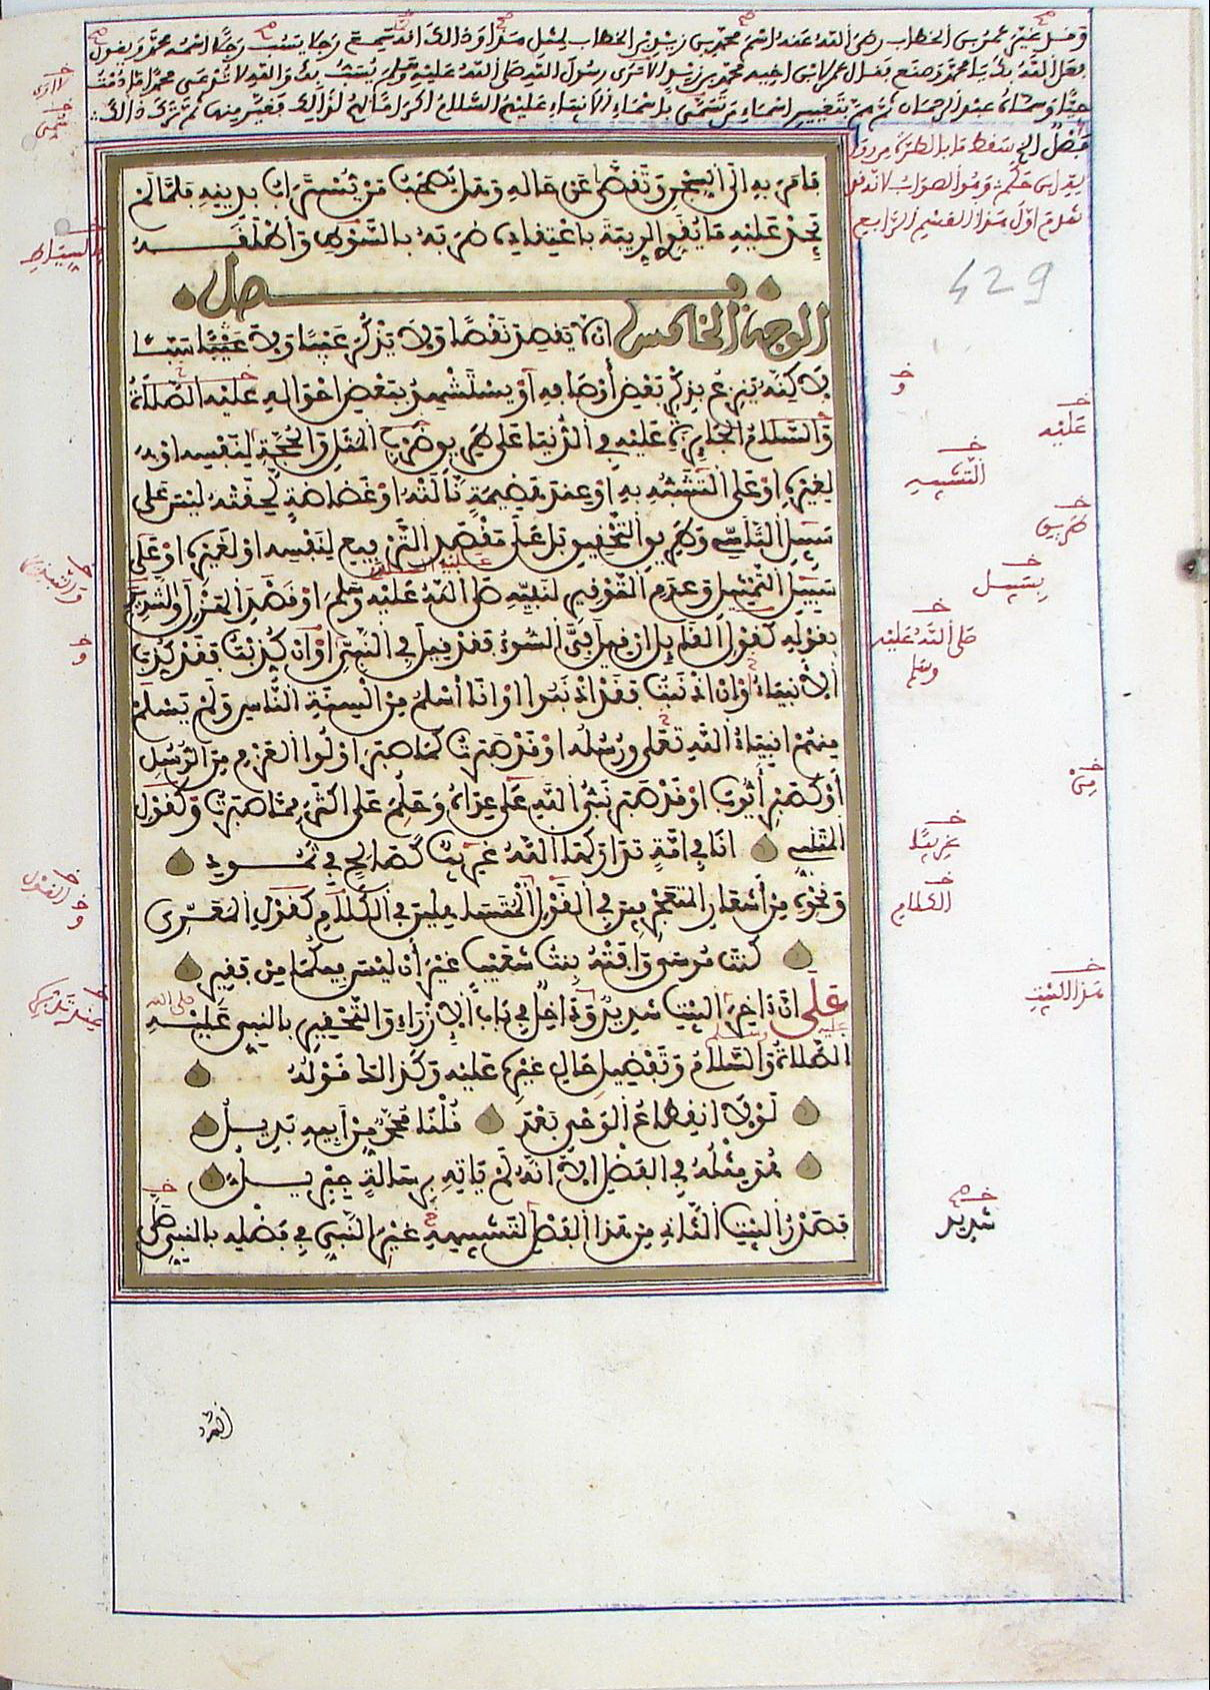 وقد غير عمر بن الخطاب رضي الله عنه اسم محمد بن زيد بن الخطاب لمثل هذا وذالك انه سمع رجلا يسب رجلا اسمه محمد ويقول
فعل الله بك يا محمد وصنع فقال عمر لابن اخيه محمد بن زيد لا أرى رسول الله صلى الله عليه وسلم يسب بك والله لا تدعى محمدا ما دمت
حيا وسماه عبد الرحمان ثم هم بتغيير اسماء من تسمى باسماء الانبياء عليهم السلام اكراما لهم لذالك فغير منها ثم ترك ذالك
فصل
429
فامر به الى السجن وتفصى عن حاله وهل يصحب من يستراب بدينه فلما لم
يجد عليه ما يقوي الريبة باعتقاده ضربه بالسوط وأطلقه
فصل
الوجه الخامس ان لا يقصد نقصا ولا يذكر عيبا ولا سبا
لاكنه ينزع بذكر بعض أوصافه أو يستشهد ببعض احواله عليه الصلاة
والسلام الجايزة عليه في الدنيا على طريق ضرب المثل والحجة لنفسه او
لغيره او على التشبه به او عند هضيمة نالته او غضاضة لحقته ليس على
سبيل التأسي وطريق التحقيق بل على مقصد الترفيع لنفسه او لغيره او على
سبيل التمثيل وعدم التوقير لنبيه صلى الله عليه وسلم او قصد الهزل والتنذير
بقوله كقول القايل ان قيل في السوء فقد قيل في النبي او ان كذبت فقد كذب
الأنبياء أو ان اذنبت فقد اذنبوا او انا اسلم من السنة الناس ولم يسلم
منهم انبياء الله تعلى ورسله او قد صبرت كما صبر اولوا العزم من الرسل
أو كصبر أيوب او قد صبر نبي الله على عداه وحلم على اكثر مما صبرت وكقول
المتنبي انا في امة تداركها الله غريب كصالح في ثمود
ونحوه من أشعار المتعجرفين في القول المتساهلين في الكلام كقول المعري
كنت موسى وافته بنت شعيب غير أن ليس فيكما من فقير
على ان ءاخر البيت شديد وداخل في باب الإزراء والتحقير بالنبي عليه
الصلاة والسلام وتفضيل حال غيره عليه وكذالك قوله
لولا انقطاع الوحي بعد محمد قلنا محمد من أبيه بديل
هو مثله في الفضل الا انه لم ياته برسالة جبريل
فصدر البيت الثاني من هذا الفصل لتشبيه غير النبي في فضله بالنبي صلى
عليه
التشبيه
طريق
سبيل
صلى الله عليه
وسلم
من
غريبا
الكلام
هذا البيت
شديد